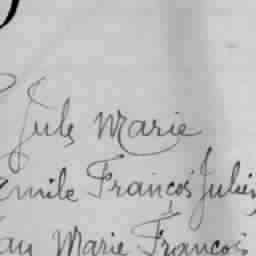 Jules Marie
Emile François Julien
Jean Marie François